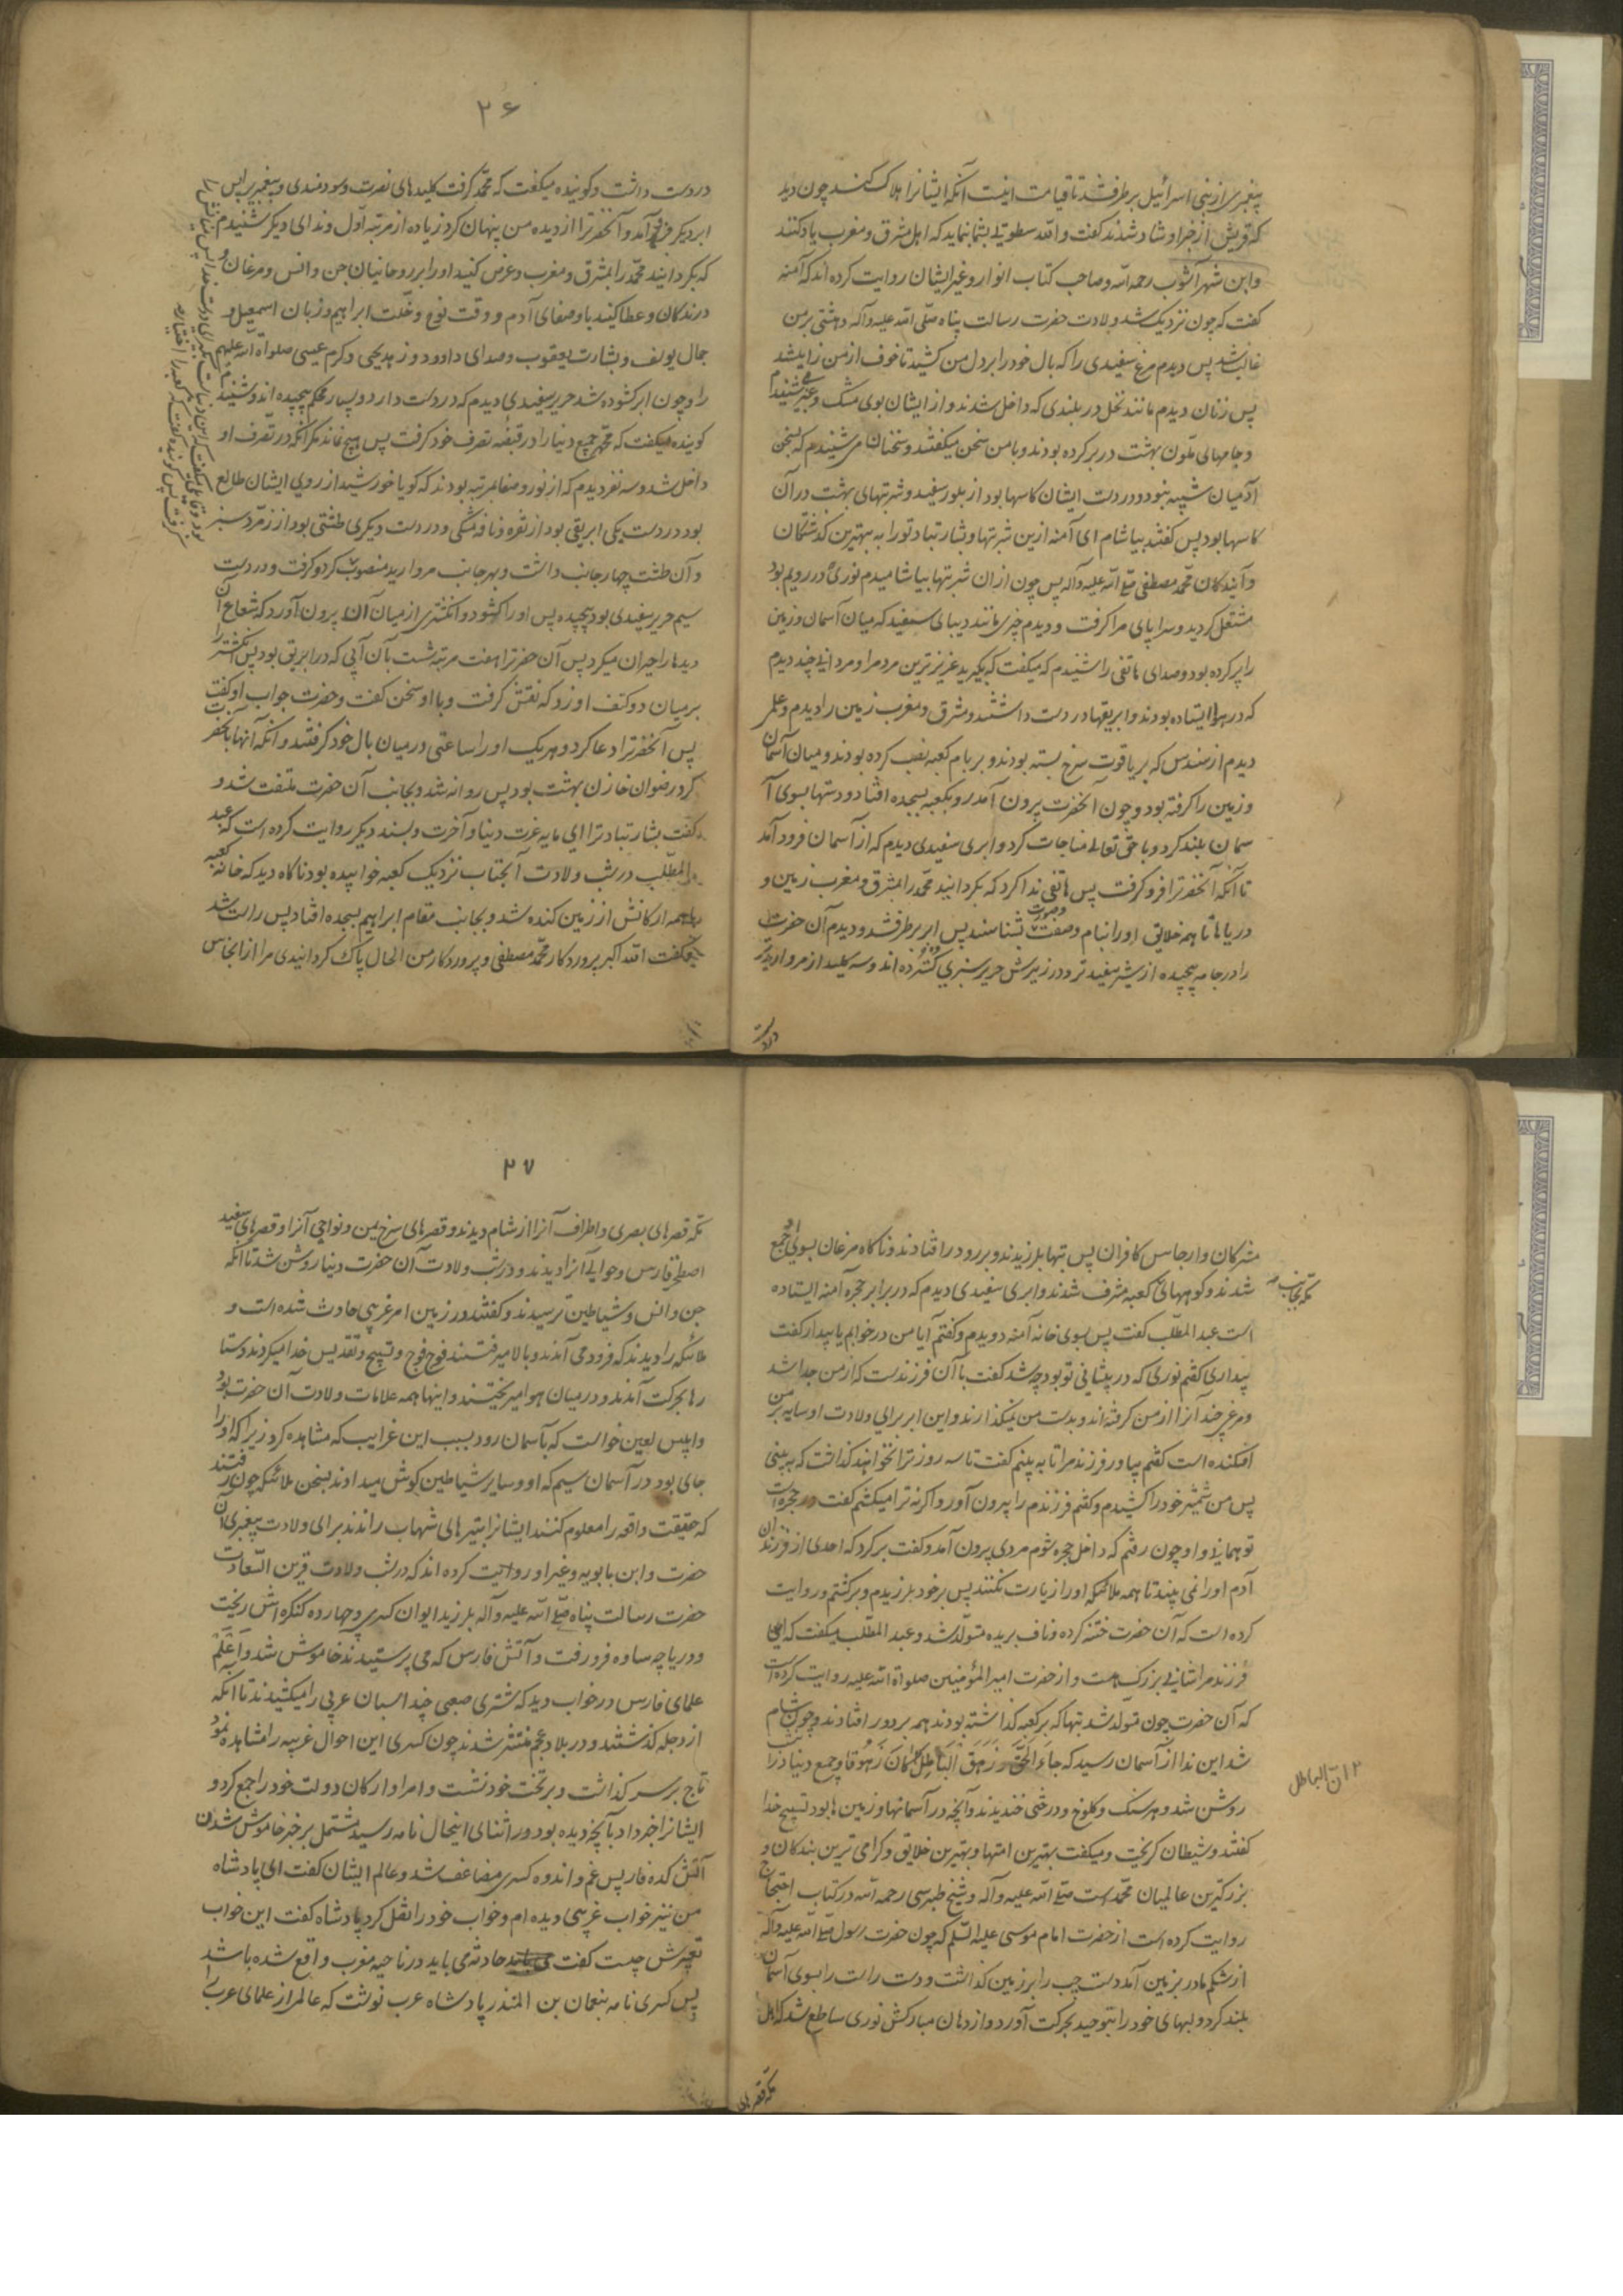 پیغمبری از بنی اسرائیل برطرف شد تا قیامت اینست آنکه ایشانرا هلاک کند چون دید
که قریش از خبر او شاد شدند گفت واللّه سطوتی بشما بنماید که اهل مشرق و مغرب یاد کنند
و ابن شهر آشوب رحمه اللّه و صاحب کتاب انوار و غیر ایشان روایت کرده اند که آمنه
گفت که چون نزدیک شد ولادت حضرت رسالت پناه صلّی اللّه علیه وآله دهشتی بر من
غالب شد پس دیدم مرغ سفیدی را که بال خود را بر دل من کشید تا خوف از من زایل شد
پس زنان دیدم مانند نخل در بلندی که داخل شدند و از ایشان بوی مشک و عنبر می شنیدم
و جامهای ملوّن بهشت در بر کرده بودند و با من سخن میگفتند و سخنان می شنیدم که بسخن
آدمیان شبیه نبود و در دست ایشان کاسها بود از بلور سفید و شربتهای بهشت در آن
کاسها بود پس گفتند بیاشام ای آمنه ازین شربتها و بشارت باد تو را به بهترین گذشتگان
و آیندگان محمّد مصطفی صلی اللّه علیه وآله پس چون از ان شربتها بیاشامیدم نوری که در رویم بود
مشتعل گردید و سراپای مرا گرفت و دیدم چیزی مانند دیبای سفید که میان آسمان و زمین
را پر کرده بود و صدای هاتفی را شنیدم که میگفت که بگیرید عزیزترین مردم را و مردانی چند دیدم
که در هوا ایستاده بودند و ابریقها در دست داشتند و مشرق و مغرب زمین را دیدم و علمی
دیدم از سندس که بر یاقوت سرخ بسته بودند و بر بام کعبه نصب کرده بودند و میان آسمان
و زمین را گرفته بود و چون آنحضرت بیرون آمد رو بکعبه بسجده افتاد و دستها بسوی آ
سمان بلند کرد و با حق تعالی مناجات کرد و ابری سفیدی دیدم که از آسمان فرود آمد
تا آنکه آنحضرترا فرو گرفت پس هاتفی ندا کرد که بگردانید محمّد را بمشرق و مغرب زمین و
دریاها تا همه خلایق او را بنام و صفت و صورت بشناسند پس ابر برطرف شد و دیدم آن حضرت
را در جامه پیچیده از شیر سفیدتر و در زیرش حریر سبزی گسترده اند و سه کلید از مروارید تر
در دست
۲۶
در دست داشت و گوینده میگفت که محمّد گرفت کلیدهای نصرت و سودمندی و پیغمبری پس
ابر دیگر فرود آمد و آنحضرترا از دیده من پنهان کرد زیاده از مرتبه اوّل و ندای دیگر شنیدم
که بگردانید محمّد را بمشرق و مغرب و عرض کنید او را بر روحانیان جن و انس و مرغان و
درندگان و عطا کنید باو صفای آدم و رقت نوح و خلّت ابراهیم و زبان اسمعیل و
جمال یوسف و بشارت یعقوب و صدای داوود و زهد یحیی و کرم عیسی صلواة اللّه علیهم
را و چون ابر گشوده شد حریر سفیدی دیدم که در دست دارد و بسیار محکم پیچیده اند و شنیدم
گوینده میگفت که محمّد جمیع دنیا را در قبضه تصرف خود گرفت پس هیچ نماند مگر آنکه در تصرف او
داخل شد و سه نفر دیدم که از نور و صفا بمرتبه بودند که گویا خورشید از روی ایشان طالع
بود در دست یکی ابریقی بود از نقره و نافه مشکی و در دست دیگری طشتی بود از زمرّد سبز
و آن طشت چهار جانب داشت و بهر جانب مروارید منصوب کرد و گرفت و در دست
سیم حریر سفیدی بود پیچیده پس او را گشود و انگشتری از میان آن بیرون آورد که شعاع آن
دیدها را حیران میکرد پس آن حضرترا هفت مرتبه شست بآن آبی که در ابریق بود پس انگشتر را
بر میان دو کتف او زد که نقش گرفت و با او سخن گفت و حضرت جواب او گفت
پس آنحضرترا دعا کرد و هریک او را ساعتی در میان بال خود گرفتند و آنکه آنها با حضرت
کرد رضوان خازن بهشت بود پس روانه شد و بجانب آن حضرت ملتفت شد و
گفت بشارت باد ترا ای مایه عزت دنیا و آخرت و بسند دیگر روایت کرده است که عبد
المطّلب در شب ولادت آنجناب نزدیک کعبه خوابیده بود ناگاه دید که خانه کعبه
با همه ارکانش از زمین کنده شد و بجانب مقام ابراهیم بسجده افتاد پس راست شد
گفت اللّه اکبر پروردگار محمّد مصطفی و پروردگار من الحال پاک گردانیدی مرا از انجاس
مشرکان و ارجاس کافران پس بتها بلرزیدند و بر رو در افتادند و ناگاه مرغان بسوی او جمع
شدند و کوههای مکه بجانب کعبه مشرف شدند و ابری سفیدی دیدم که در برابر حجره آمنه ایستاده
است عبد المطّلب گفت پس بسوی خانه آمنه دویدم و گفتم آیا من در خوابم یا بیدار گفت
بیداری گفتم نوری که در پیشانی تو بود چه شد گفت با آن فرزندست که از من جدا شد
و مرغی چند آنرا از من گرفته اند و بدست من نمیگذارند و این ابر برای ولادت او سایه بر من
افکنده است گفتم بیاور فرزند مرا تا به بینم گفت تا سه روز ترا نخواهند گذاشت که به بینی
پس من شمشیر خود را کشیدم و گفتم فرزندم را بیرون آور و اگر نه ترا میکشم گفت در حجره است
تو همانی و او چون رفتم که داخل حجره شوم مردی بیرون آمد و گفت برگرد که احدی از فرزندان
آدم او را نمی بیند تا همه ملائکه او را زیارت نکنند پس بر خود بلرزیدم و برگشتم و روایت
کرده است که آن حضرت ختنه کرده و ناف بریده متولّد شد و عبد المطّلب میگفت که این
فرزند مرا شانی بزرگ هست و از حضرت امیر المؤمنین صلواة اللّه علیه روایت کرده است
که آن حضرت چون متولّد شد بتها که بر کعبه گذاشته بودند همه بر رو در افتادند و چون شام
شد این ندا از آسمان رسید که جَاءَ الحَقُّ وَ زَهَقَ البَاطِلُ کَانَ زَهُوقا و جمیع دنیا در آن شب
ان الباطل
روشن شد و هر سنگ و کلوخ و درختی خندیدند و آنچه در آسمانها و زمین ها بود تسبیح خدا
گفتند و شیطان گریخت و میگفت بهترین امتها و بهترین خلایق و گرامی ترین بندگان و
بزرگترین عالمیان محمّد است صلی اللّه علیه وآله و شیخ طبرسی رحمه اللّه در کتاب احتجاج
روایت کرده است از حضرت امام موسی علیه السّلام که چون حضرت رسول صلی اللّه علیه وآله
از شکم مادر بزمین آمد دست چپ را بر زمین گذاشت و دست راست را بسوی آسمان
بلند کرد و لبهای خود را بتوحید بحرکت آورد و از دهان مبارکش نوری ساطع شد که اهل
مکه قصرهای
۲۷
مکه قصرهای بصری و اطراف آنرا از شام دیدند و قصرهای سرخ یمن و نواحی آنرا و قصرهای سفید
اصطخر فارس و حوالی آنرا دیدند و در شب ولادت آن حضرت دنیا روشن شد تا آنکه
جن و انس و شیاطین ترسیدند و گفتند در زمین امر غریبی حادث شده است و
ملائکه را دیدند که فرود می آمدند و بالا میرفتند فوج فوج و تسبیح و تقدیس خدا میکردند و ستا
رها بحرکت آمدند و در میان هوا میریختند و اینها همه علامات ولادت آن حضرت بود
و ابلیس لعین خواست که بآسمان رود بسبب این غرایب که مشاهده کرد زیرا که او را
جای بود در آسمان سیم که او و سایر شیاطین گوش میدادند بسخن ملائکه چون رفتند
که حقیقت واقعه را معلوم کنند ایشانرا بتیرهای شهاب راندند برای ولادت پیغمبری آن
حضرت و ابن بابویه و غیر او روایت کرده اند که در شب ولادت قرین السّعادت
حضرت رسالت پناه صلی اللّه علیه وآله بلرزید ایوان کسری و چهارده کنگره اش ریخت
و دریاچه ساوه فرو رفت و آتش فارس که می پرستیدند خاموش شد و اَعلَم
علمای فارس در خواب دید که شتری صعبی چند اسبان عربی را میکشیدند تا آنکه
از دجله گذشتند و در بلاد عجم منتشر شدند چون کسری این احوال غریبه را مشاهده نمود
تاج بر سر گذاشت و بر تخت خود نشست و امرا و ارکان دولت خود را جمع کرد و
ایشانرا خبر داد بآنچه دیده بود در اثنای اینحال نامه رسید مشتمل بر خبر خاموش شدن
آتش کده فارس پس غم و اندوه کسری مضاعف شد و عالم ایشان گفت ای پادشاه
من نیز خواب غریبی دیده ام و خواب خود را نقل کرد پادشاه گفت این خواب
تعبیرش چیست گفت حادثه می باید در ناحیه مغرب واقع شده باشد
پس کسری نامه بنعمان بن المنذر پادشاه عرب نوشت که عالمی از علمای عرب